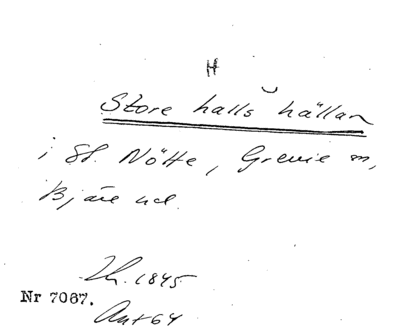 H
Store halls hällan
i St. Nötte, Grevie sn,
Bjäre hd.
Th. 1845
Nr 7067.
Ant 64